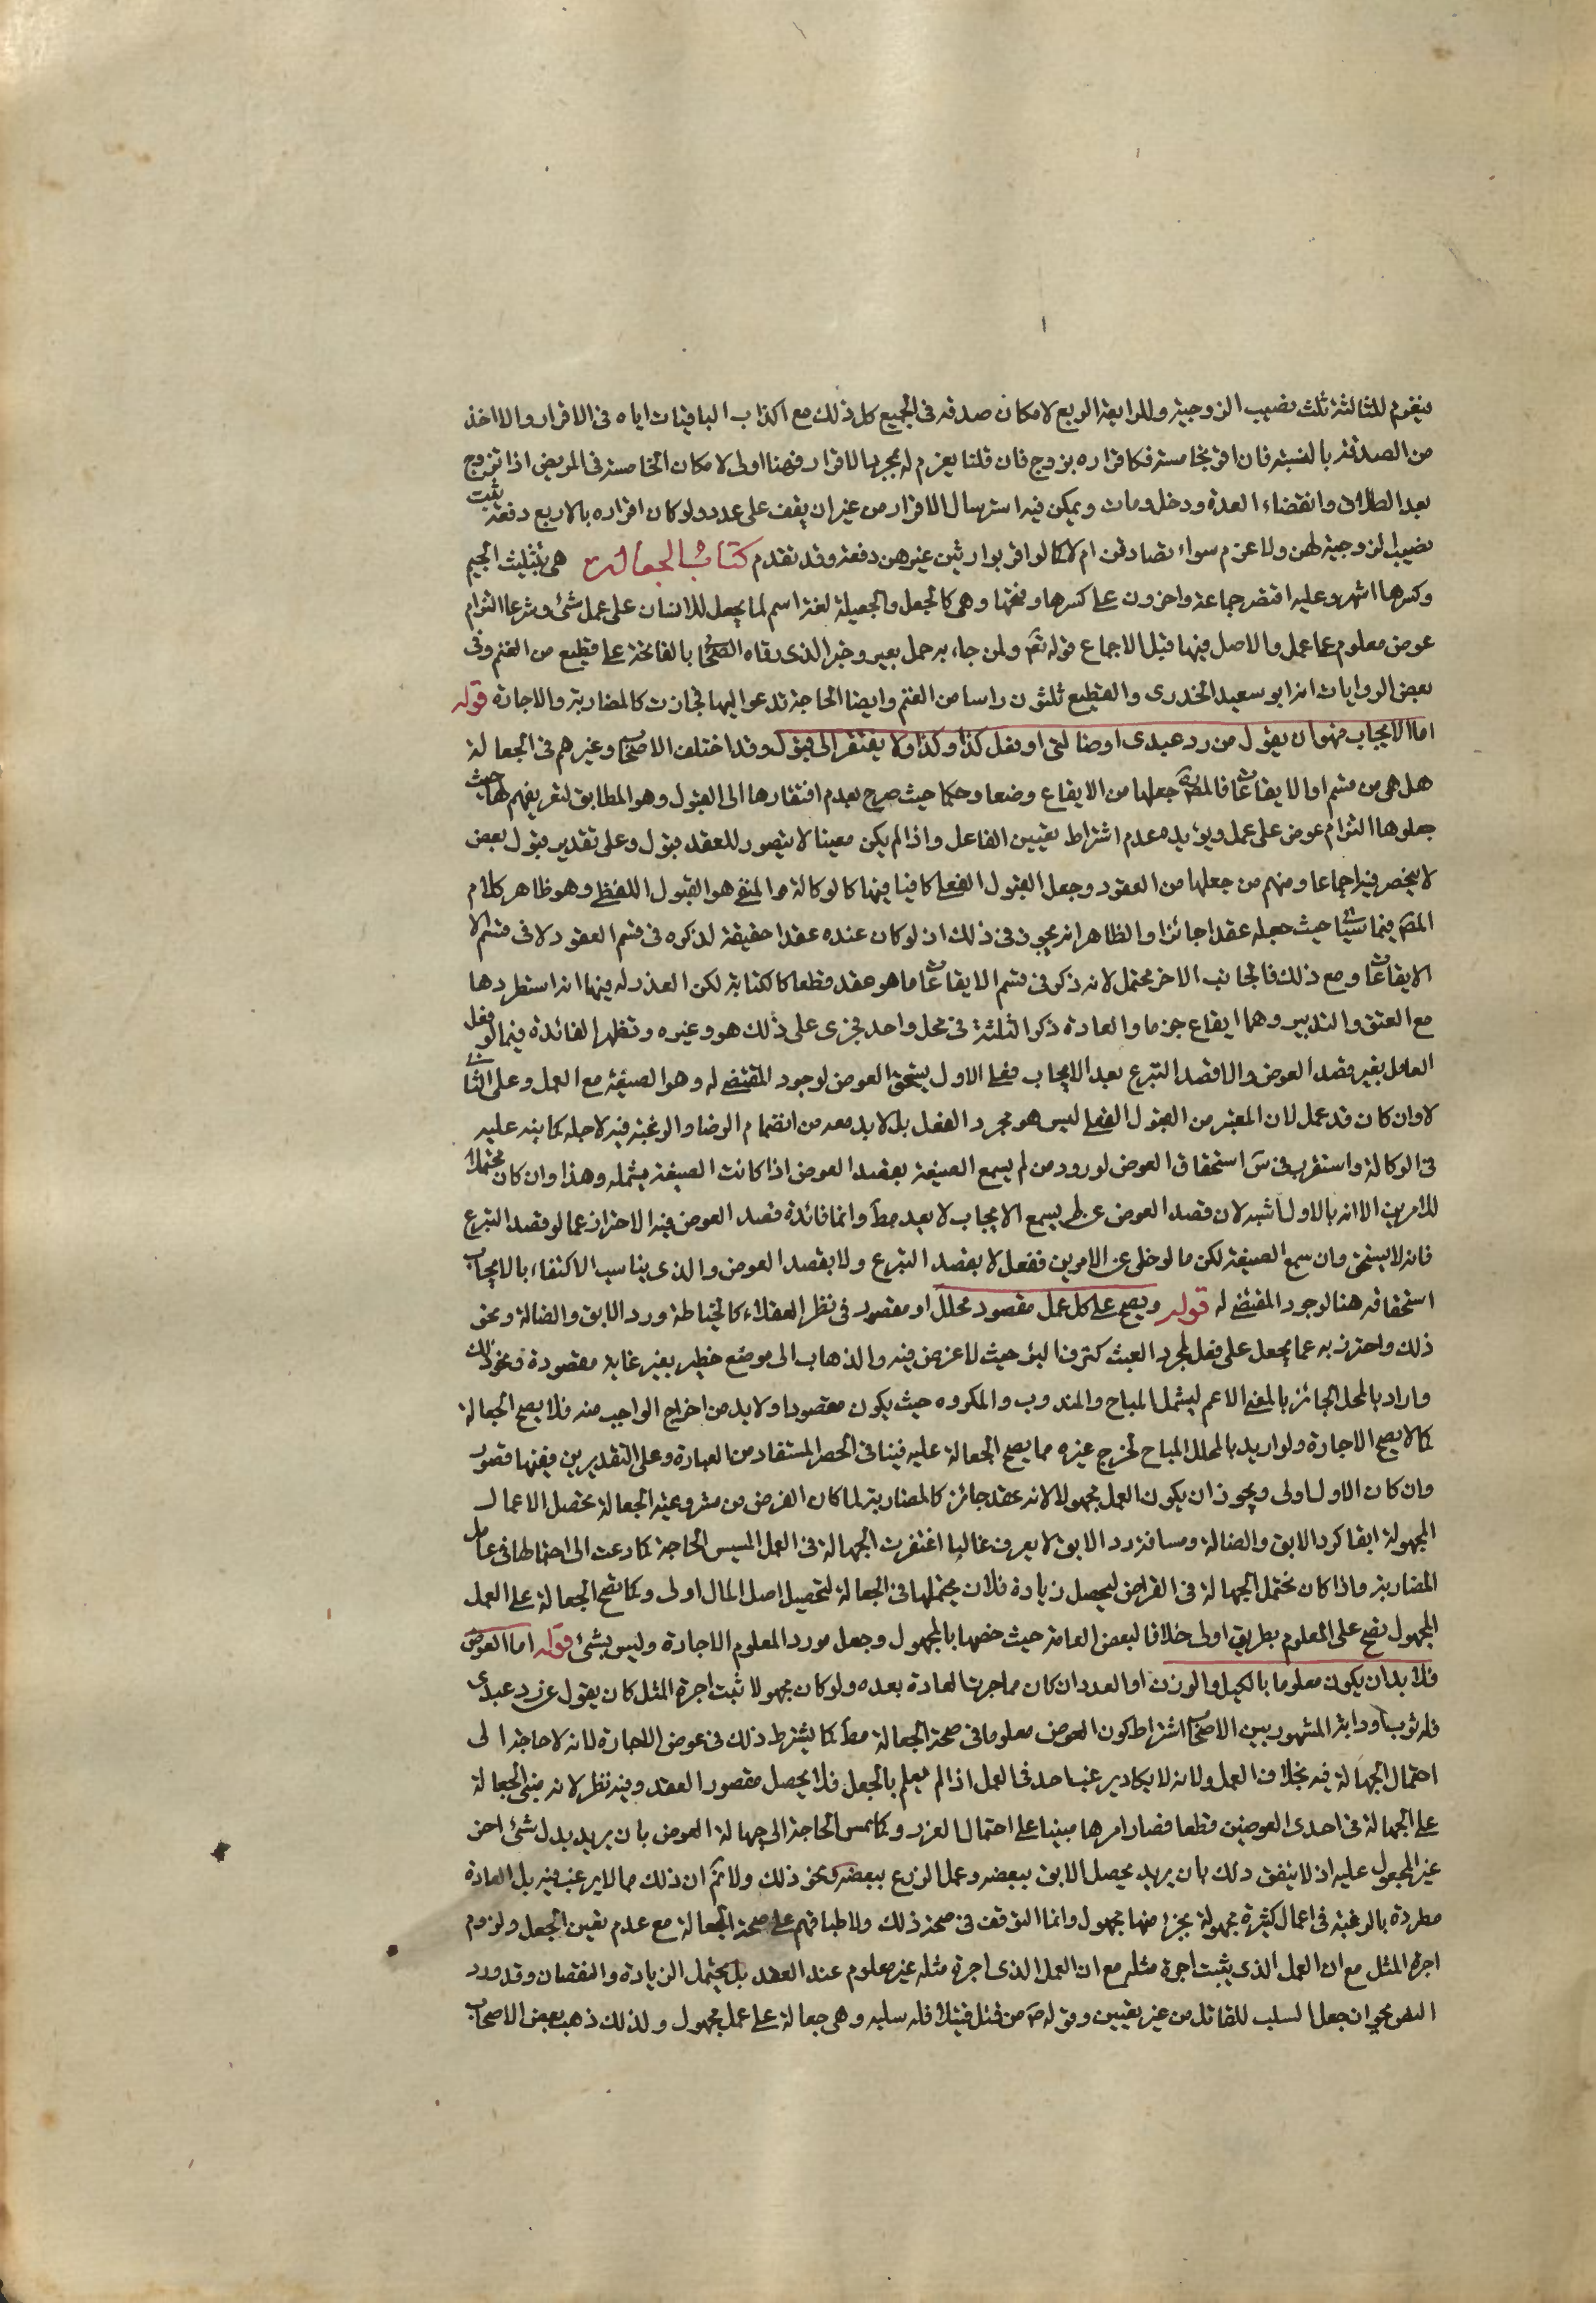 فيغرم للثالثة ثلث نصيب الزوجية وللرابعة الربع لامكان صدقه فى الجميع كل ذلك مع اكذاب الباقيات اياه فى الاقرار والا اخذ
من المصدقة بالنسبة فان اقر بخامسة فكاقراره بزوج فان قلنا يغرم له بمجرد الاقرار فهنا اولى لامكان الخامسة فى المريض اذا تزوج
بعد الطلاق وانقضاء العدة ودخل ومات ويمكن فيه استرسال الاقرار من غير ان يقف على عدد ولو كان اقراره بالاربع دفعة ثبت
نصيب الزوجية لهن ولا غرم سواء تصادقن ام لا كما لو اقر بوارثين غيرهن دفعة وقد تقدم كتاب الجعالة هى بتثليث الجيم
وكسرها اشهر وعليه اقتصر جماعة واخرون على كسرها وفتحها وهى كالجعل والجعيلة لغة اسم لما يجعل للانسان على عمل شئ وشرعا التزام
عوض معلوم على عمل والاصل فيها قبل الاجماع قوله تع ولمن جاء به حمل بعير وخبر الذى رقاه الصحابى بالفاتحة على قطيع من الغنم وفى
بعض الروايات انه ابو سعيد الخدرى والقطيع ثلثون راسا من الغنم وايضا الحاجة تدعو اليها فجازت كالمضاربة والاجارة قوله
اما الايجاب فهو ان يقول من رد عبدى او ضالتى او فعل كذا وكذا ولا يفتقر الى قبول وقد اختلف الاصحاب وغيرهم فى الجعالة
هل هى من قسم او الايقاعات فالمصه جعلها من الايقاع وضعا وحكما حيث صرح بعدم افتقارها الى القبول وهو المطابق لتعريفهم لها حيث
جعلوها التزام عوض على عمل ويؤيده عدم اشتراط تعيين الفاعل واذا لم يكن معينا لا يتصور للعقد قبول وعلى تقدير قبول بعض
لا ينحصر فيه اجماعا ومنهم من جعلها من العقود وجعل القبول الفعلى كافيا فيها كالوكالة والمنفى هو القبول اللفظى وهو ظاهر كلام
المصه فيما سياتى حيث جعله عقدا جائزا والظاهر انه تجوز فى ذلك اذ لو كان عنده عقدا حقيقة لذكره فى قسم العقود لا فى قسم الا
الايقاعات ومع ذلك فالجانب الاخر محتمل لانه ذكر فى قسم الايقاعات ما هو عقد قطعا كالكتابة لكن العذر له فيها انه استطردها
مع العتق والتدبير وهما ايقاع جزما والعادة ذكر الثلثة فى محل واحد فجرى على ذلك هو وغيره وتظهر الفائدة فيما لو فعل
العامل بغير قصد العوض ولا قصد التبرع بعد الايجاب فعلى الاول يستحق العوض لوجود المقتضى له وهو الصيغة مع العمل وعلى الثانى
لا وان كان قد عمل لان المعتبر من القبول الفعلى ليس هو مجرد الفعل بل لا بد معه من انضمام الرضا والرغبة فيه لاجله كما نبه عليه
فى الوكالة واستقرب فى س استحقاق العوض لو رد من لم يسمع الصيغة بقصد العوض اذا كانت الصيغة يشمله وهذا وان كان محتملا
للامرين الا انه بالاول اشبه لان قصد العوض ممن لم يسمع الايجاب لا يعد مط وانما فائدة قصد العوض فيه الاحتراز عما لو قصد التبرع
فانه لا يستحق وان سمع الصيغة لكن ما لو خلى عن الامرين ففعل لا بقصد التبرع ولا بقصد العوض والذى يناسب الاكتفاء بالايجاب
استحقاقه هنا لوجود المقتضى له قوله ويصح على كل عمل مقصود محلل او مقصود فى نظر العقلاء كالخياطة ورد الابق والضالة ونحو
ذلك واحترز به عما يجعل على فعل لمجرد العبث كنزف البئر حيث لا غرض فيه والذهاب الى موضع خطير بغير غاية مقصودة ونحو ذلك
واراد بالمحل الجائز بالمعنى الاعم ليشمل المباح والمندوب والمكروه حيث يكون مقصودا ولا بد من اخراج الواجب منه فلا يصح الجعالة
كما لا يصح الاجارة ولو اريد بالمحلل المباح لخرج غيره مما يصح الجعالة عليه فينافى الحصر المستفاد من العبارة وعلى التقديرين ففيها قصور
وان كان الاول اولى ويجوز ان يكون العمل مجهولا لانه عقد جائز كالمضاربة لما كان الغرض من مشروعية الجعالة تحصيل الاعمال
المجهولة ابقا كرد الابق والضالة ومسافة رد الابق لا يعرف غالبا اغتفرت الجهالة فى العمل لمسيس الحاجة كما دعت الى احتمالها فى عامل
المضاربة واذا كان يحتمل الجهالة فى القراض ليحصل زيادة فلان يحتملها فى الجعالة لتحصيل اصل المال اولى وكما تصح الجعالة على العمل
المجهول تصح على المعلوم بطريق اولى خلافا لبعض العامة حيث خصها بالمجهول وجعل مورد المعلوم الاجارة وليس بشئ قوله اما العوض
فلا بد ان يكون معلوما بالكيل والوزن او العدد ان كان مما جرت العادة بعده ولو كان مجهولا ثبت اجرة المثل كان يقول من رد عبدى
فله ثوب او دابة المشهور بين الاصحاب اشتراط كون العوض معلوما فى صحة الجعالة مط كما يشترط ذلك فى عوض الاجارة لانه لا حاجة الى
احتمال الجهالة فيه بخلاف العمل ولانه لا يكاد يرغب احد فى العمل اذا لم يعلم بالجعل فلا يحصل مقصود العقد وفيه نظر لانه مبنى الجعالة
على الجهالة فى احدى العوضين قطعا فصار امرها مبنيا على احتمال الغرر وكما تمس الحاجة الى جهالة العوض بان يريد بدل شئ اخر
غير المجعول عليه اذ لا يتفق ذلك بان يريد تحصيل الابق ببعضه وعمل الزرع ببعضه ونحو ذلك ولا نم ان ذلك مما لا يرغب فيه بل العادة
مطردة بالرغبة فى اعمال كثيرة مجهولة بجزء منها مجهول وانما التوقف فى صحة ذلك ولاطباقهم على صحة الجعالة مع عدم تعين الجعل ولزوم
اجرة المثل مع ان العمل الذى يثبت اجرة مثله مع ان العمل الذى اجرة مثله غير معلوم عند العقد بل يحتمل الزيادة والنقصان وقد ورد
النص بجواز جعل السلب للقاتل من غير تعيين وقوله ص من قتل قتيلا فله سلبه وهى جعالة على عمل مجهول ولذلك ذهب بعض الاصحاب